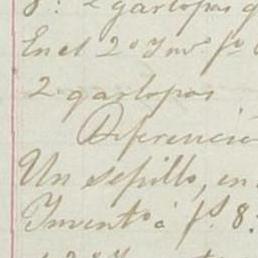 8: 2 garlopas
En el 2º Invº fº
2 garlopas
Diferencia
Un sepillo, en
Inventº á fs. 8: